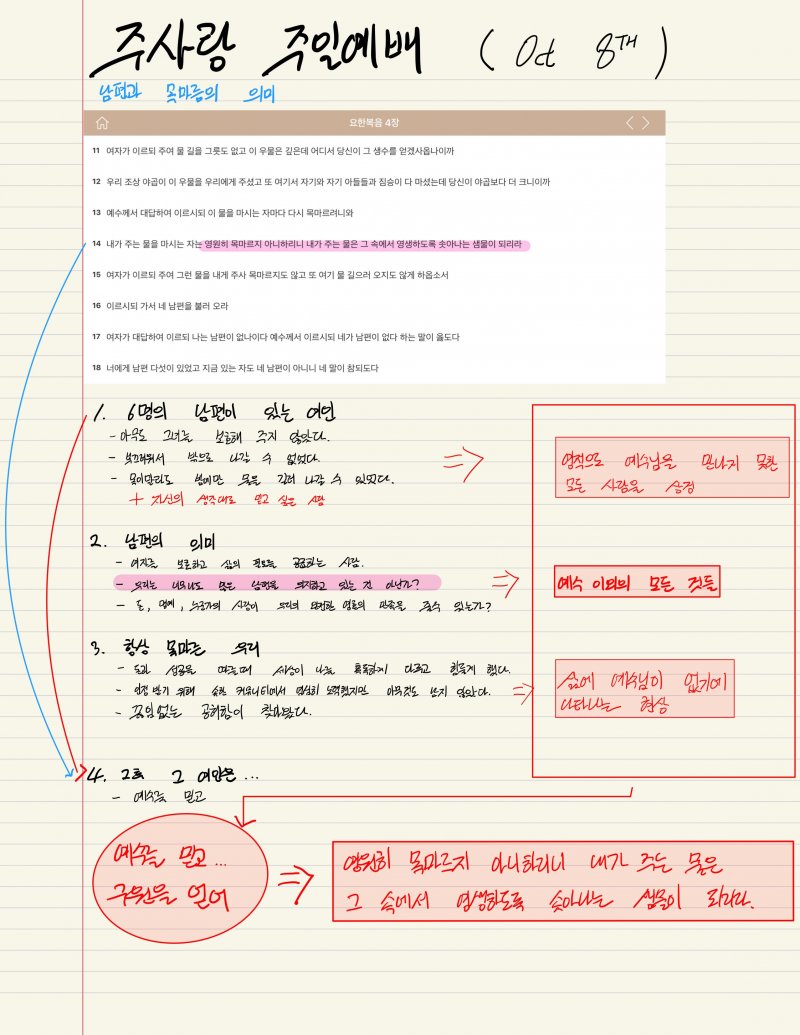 주사랑 주일예배 (Oct 8TH)
남편과 목마름의 의미
요한복음 4장
11 여자가 이르되 주여 물 길을 그릇도 없고 이 우물은 깊은데 어디서 당신이 그 생수를 얻겠사옵나이까
12 우리 조상 야곱이 이 우물을 우리에게 주셨고 또 여기서 자기와 자기 아들들과 짐승이 다 마셨는데 당신이 야곱보다 더 크니이까
13 예수께서 대답하여 이르시되 이 물을 마시는 자마다 다시 목마르려니와
14 내가 주는 물을 마시는 자는 영원히 목마르지 아니하리니 내가 주는 물은 그 속에서 영생하도록 솟아나는 샘물이 되리라
15 여자가 이르되 주여 그런 물을 내게 주사 목마르지도 않고 또 여기 물 길으러 오지도 않게 하옵소서
16 이르시되 가서 네 남편을 불러 오라
17 여자가 대답하여 이르되 나는 남편이 없나이다 예수께서 이르시되 네가 남편이 없다 하는 말이 옳도다
18 너에게 남편 다섯이 있었고 지금 있는 자도 네 남편이 아니니 네 말이 참되도다
1. 6명의 남편이 있는 여인
- 아무도 그녀를 보호해 주지 않았다.
- 부끄러워서 밖으로 나갈 수 없었다.
- 목이말라도 밤에만 물을 길러 나갈 수 있었다.
+ 자신의 생각대로 믿고 싶은 사람
영적으로 예수님을 만나지 못한
모든 사람을 상징
2. 남편의 의미
- 여자를 보호하고 삶의 필요를 공급하는 사람.
- 우리는 너무나도 많은 남편을 의지하고 있는 건 아닌가?
- 돈, 명예, 누군가의 사랑이 우리의 영혼의 만족을 줄수 있는가?
예수 이외의 모든 것들
3. 항상 목마른 우리
- 돈과 성공을 따를때 세상이 나를 혹독하게 다루고 힘들게 했다.
- 인정 받기 위해 커뮤니티에서 열심히 노력했지만 아무것도 남지 않았다.
- 끊임없는 공허함이 찾아왔다.
삶에 예수님이 없기에
나타나는 현상
4. 그 여인은 ...
- 예수를 믿고
예수를 믿고 ...
구원을 얻어
영원히 목마르지 아니하리니 내가 주는 물은
그 속에서 영생하도록 솟아나는 샘물이 되리라.